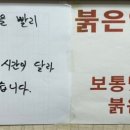 을 빨리
시간이 달라
습니다.
붉은
보통
붉은